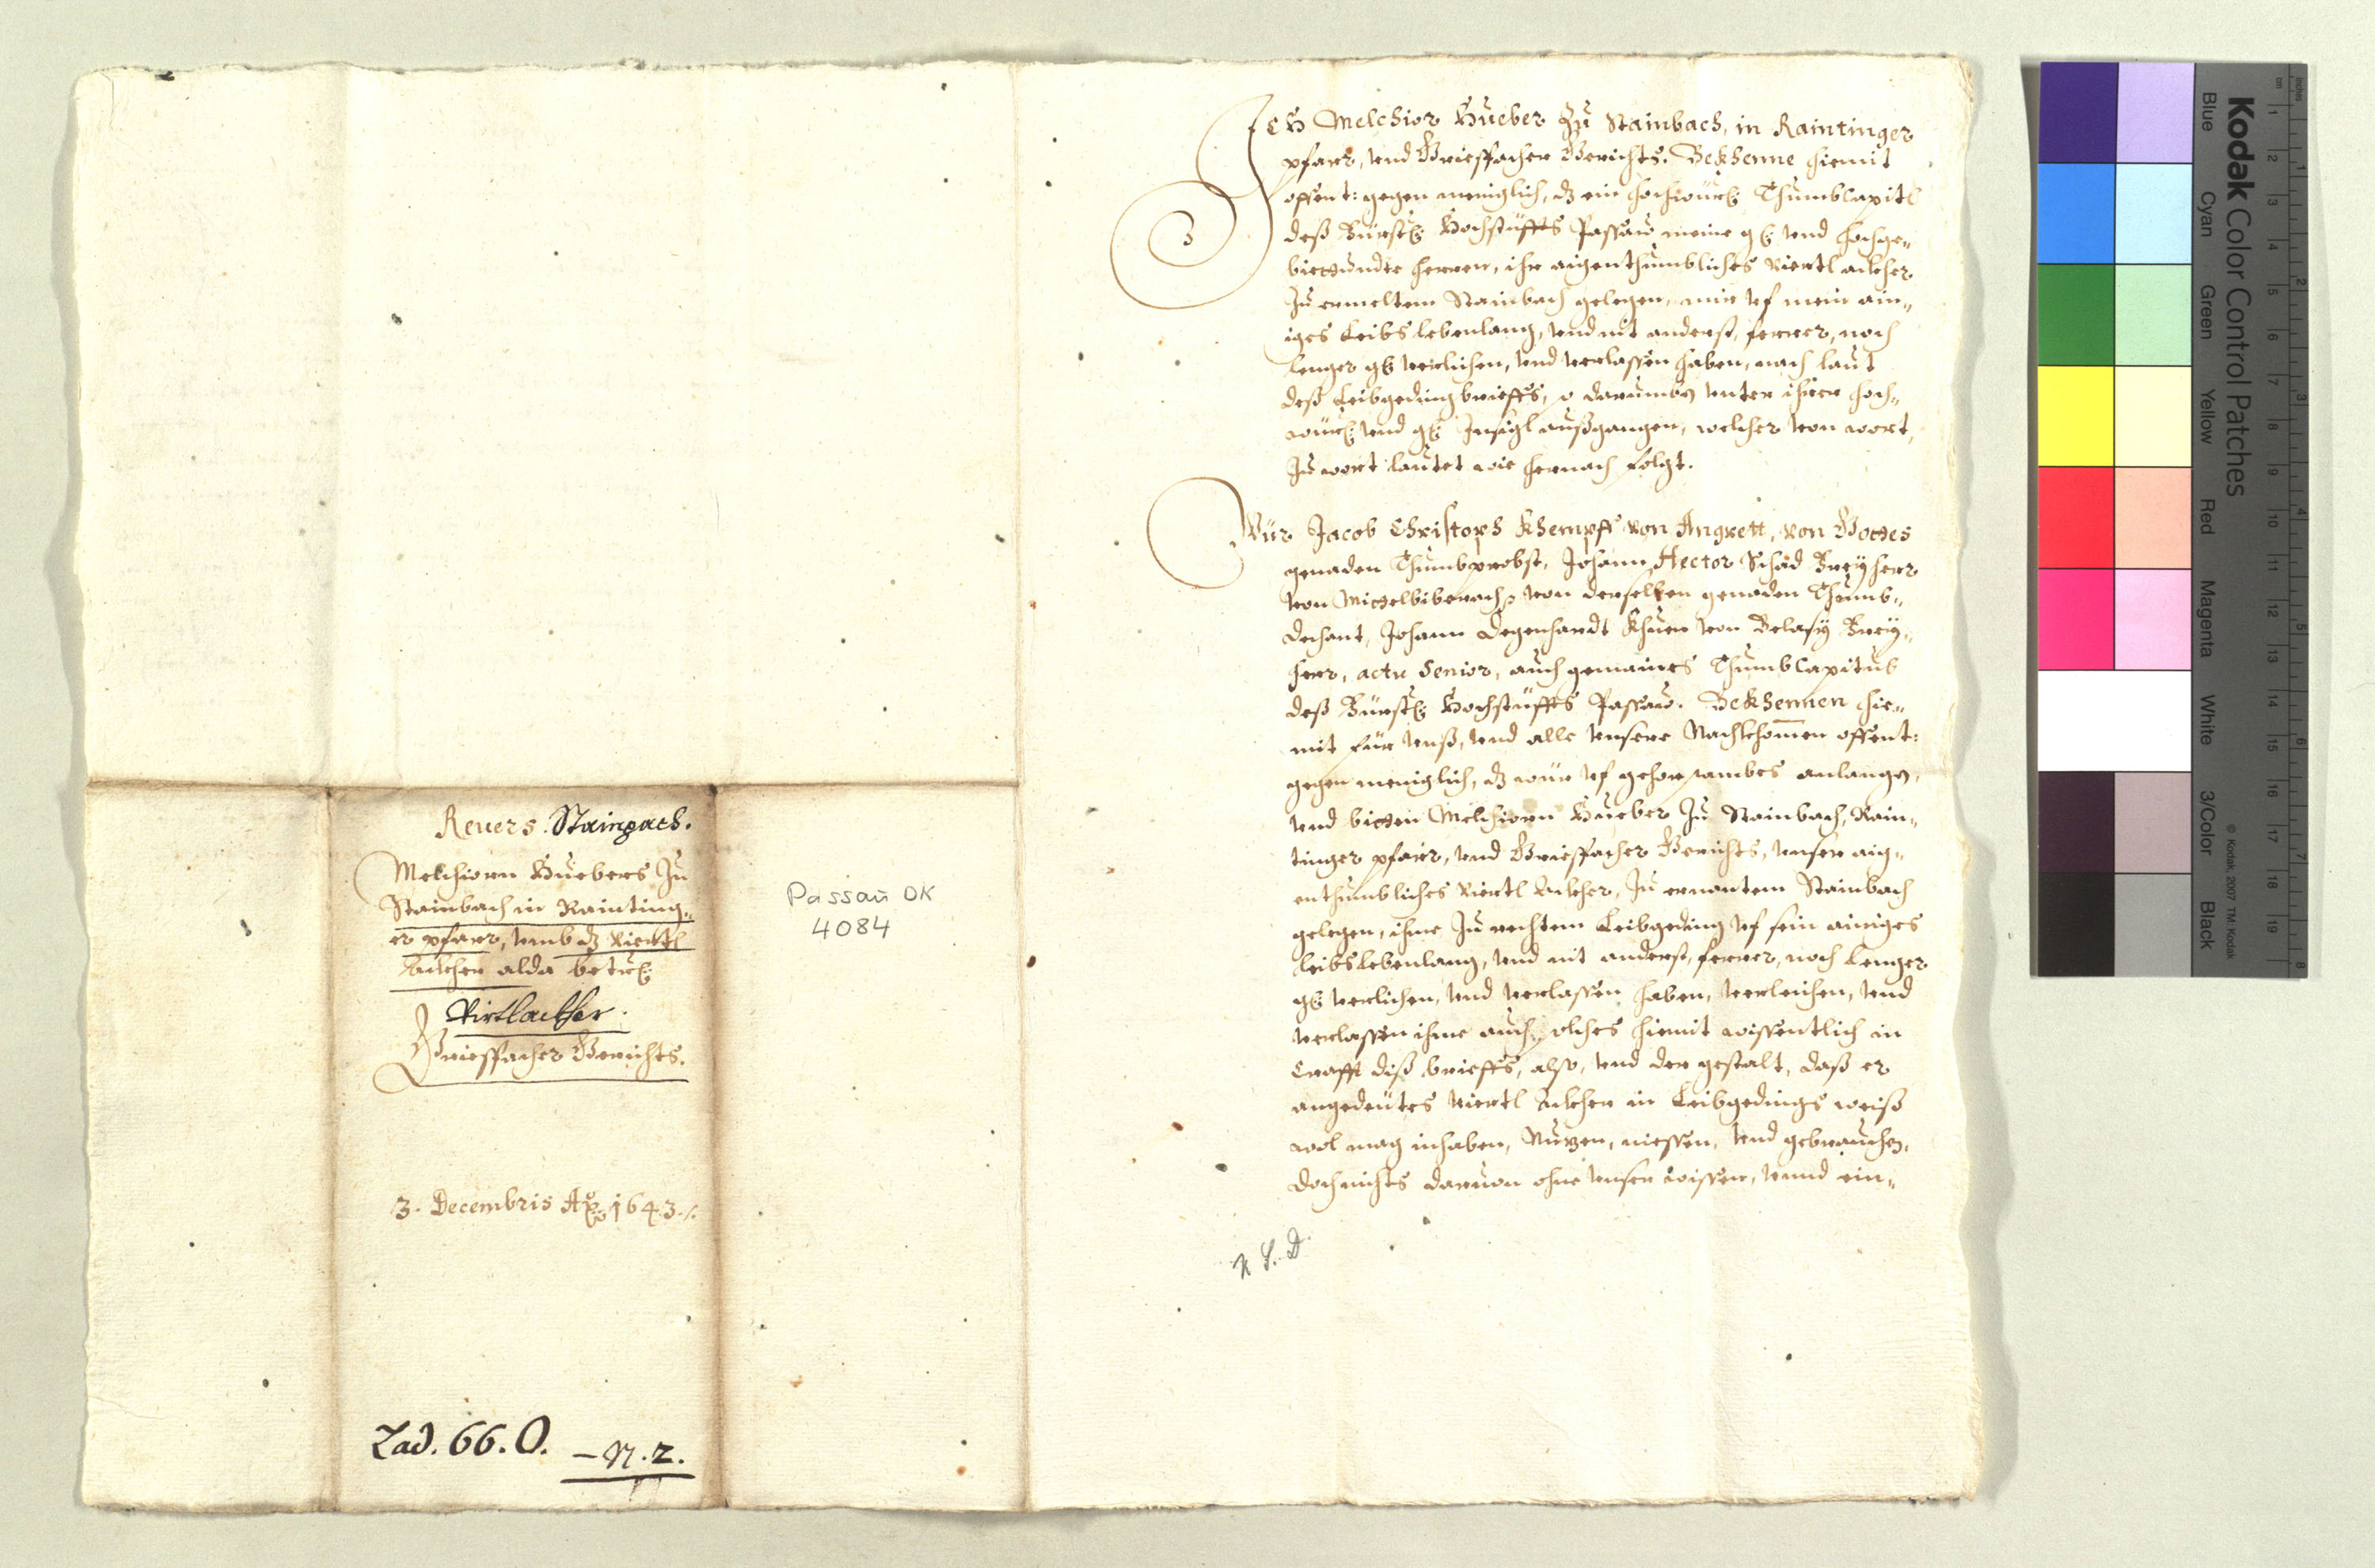 Reuers. Stainpach.
Melchiorn Huebers Zu
Stainbach in Rainting„
er pfarr, vmb dz Viertl
Ackher alda betrl:
Virtlackher.
Griesspacher Gerichts.
3. Decembris Ao 1643.
Lad. 66. O. – N. 2.
Passau DK
4084
ICH Melchior Hueber Zu Stainbach, in Raintinger
pfarr, vnd Griesspacher Gerichts. Bekhenne hiemit
offent: gegen meniglich, dz ein hochwürl: Thumb Capitl
deß Fürstl: Hochstüffts Passaw meine gl: vnd hochge„
biettundte herren, ihr aigenthumbliches Viertl ackher
Zu ermeltem Stainbach gelegen, mir vf mein ain„
iges Leibs lebenlang, vnd nit anderst, ferrer, noch
lenger gl: verlichen, vnd verlassen haben, nach laut
deß Leibgeding brieffs, so darumben vnter ihrer hoch„
würl: vnd gl: Insigl außgangen, welcher von wort,
Zu wort lautet wie hernach folgt.
Wür Jacob Christoph Khempff von Angrett, von Gottes
genaden Thumbprobst, Johann Hector Schad Freyherr
von Mittelbiberach, von derselben genaden Thumb„
dechant, Johann Degenhardt Khuen von Belasy Frey„
herr, actu Senior, auch gemaines Thumb Capitul
deß Fürstl: Hochstüffts Passaw. Bekhennen hie„
mit für vnß, vnd alle vnsere Nachkhomen offent:
gegen meniglich, dz wür vf gehorsambes anlangen,
vnd bitten Melchiorn Hueber Zu Stainbach, Rain„
tinger pfarr, vnd Griesspacher Gerichts, vnser aig„
enthumbliches Viertl Ackher, Zu ernantem Stainbach
gelegen, ihme Zu rechtem Leibgeding vf sein ainiges
Leibs Lebenlang, vnd nit anderst, ferrer, noch Lenger
gl: verlichen, vnd verlassen haben, verleichen, vnd
verlassen ihme auch solches hiemit wissentlich in
Crafft diß brieffs, also, vnd der gestalt, daß er
angedeutes Viertl Ackher in Leibgedings weiß
wol mag inhaben, Nuzen, niessen, vnd gebrauchen,
doch nichts daruon ohne vnser wissen, vnnd ein„